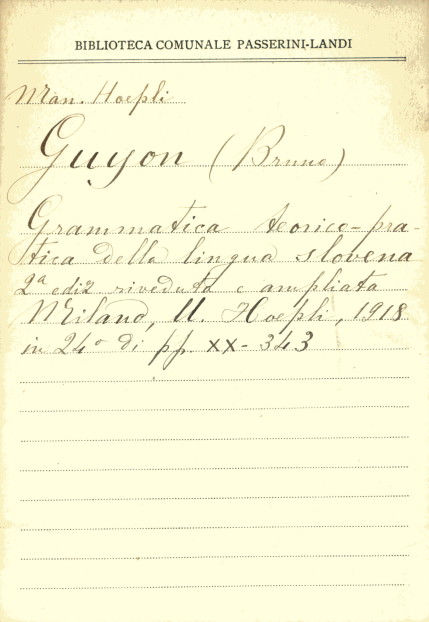 BIBLIOTECA COMUNALE PASSERINI-LANDI
Man. Hoepli
Guyon (Bruno)
Grammatica teorico-pra-
tica della lingua slovena
2ª ediz riveduta e ampliata
Milano, U. Hoepli, 1918
in 24° di pp. XX-343